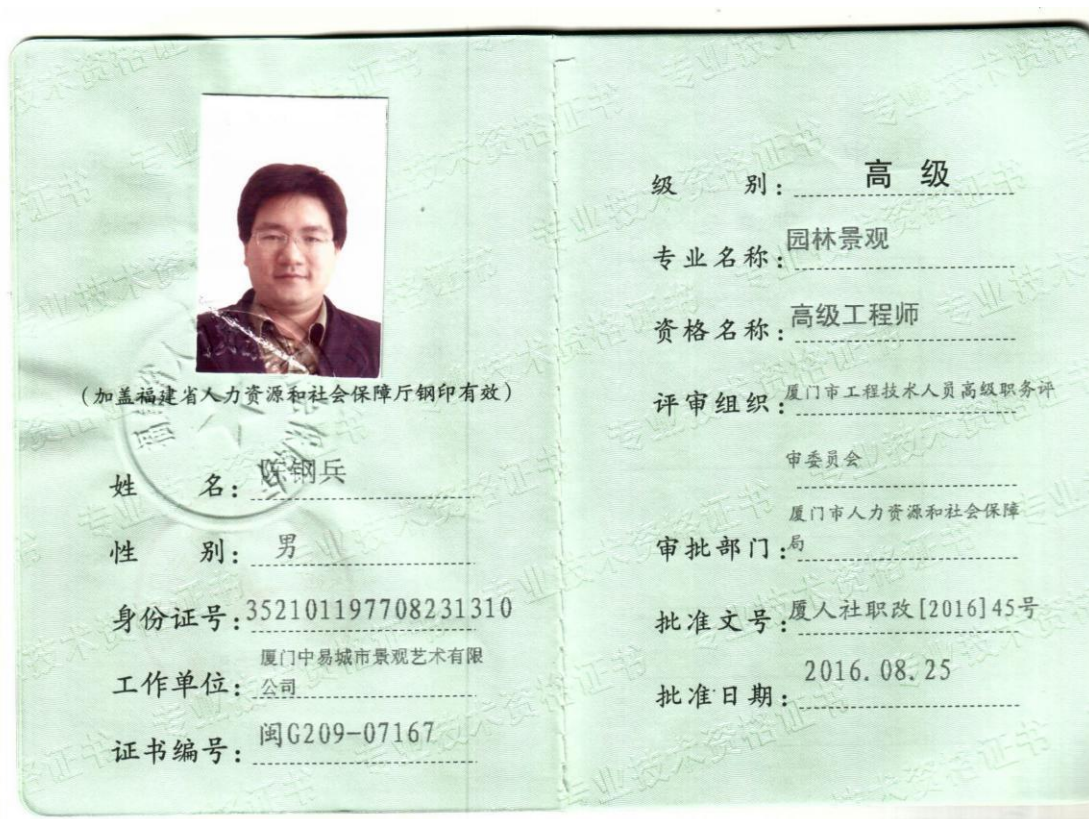 (加盖福建省人力资源和社会保障厅钢印有效)
姓 名: 陈钢兵
性 别: 男
身份证号: 352101197708231310
工作单位: 厦门中易城市景观艺术有限
公司
证书编号: 闽G209-07167
级 别: 高 级
专业名称: 园林景观
资格名称: 高级工程师
评审组织: 厦门市工程技术人员高级职务评
审委员会
厦门市人力资源和社会保障
审批部门: 局
批准文号: 厦人社职改[2016]45号
批准日期: 2016.08.25
专业技术资格证书